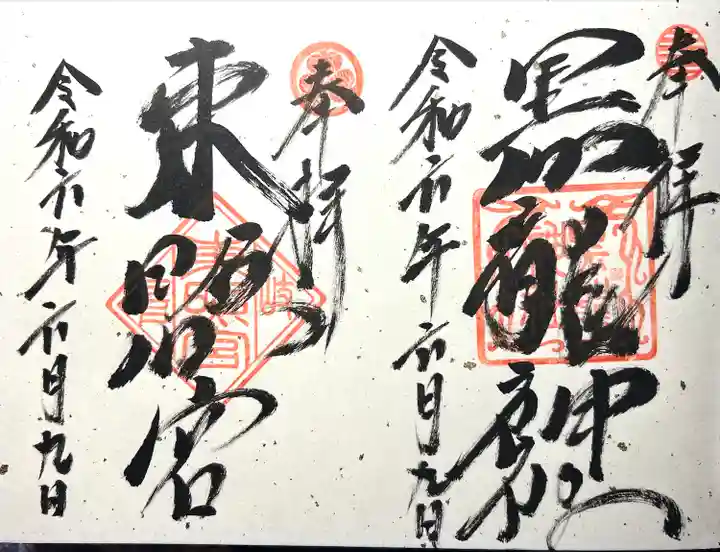 奉拝
黒龍神社
令和六年六月九日
奉拝
東照宮
令和六年六月九日